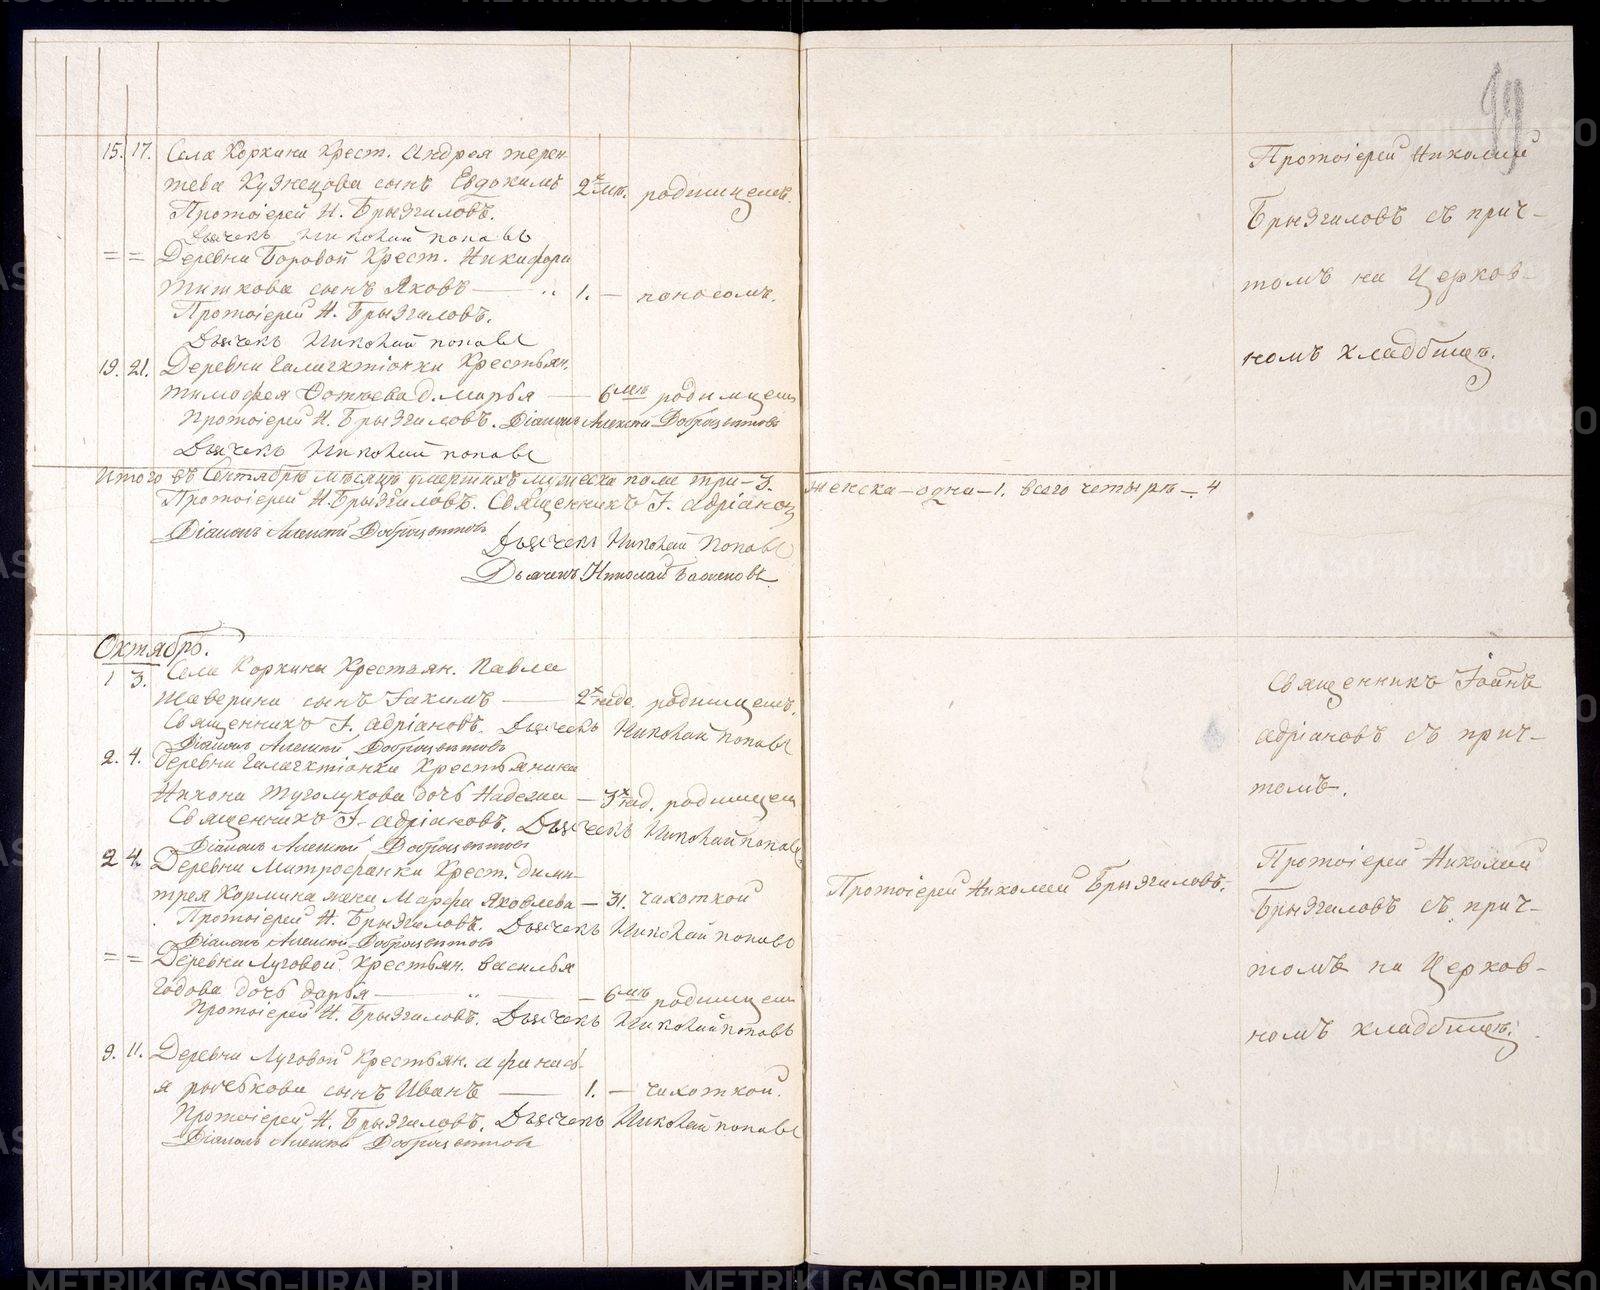 99
15. 17. Села Коркина Крест. Андрея терен
тева Кузнецова сынъ Евдокимъ 2 х мѣ. родимцемъ.
Протоіерей Н. Брызгаловъ.
Дьячекъ Николай Поповъ
= = Деревни Боровой Крест. Никифора
Титкова сынъ Яковъ — 1. — поносомъ.
Протоіерей Н. Брызгаловъ.
Дьячекъ Николай Поповъ
19. 21. Деревни Крестьян.
тимофея Фотеева д. Марья — 6 мѣ родимцем
Протоіерей Н. Брызгаловъ. Діаконъ Алексей Доброцветовъ
Дьячекъ Николай Поповъ
Протоіерей Николай
Брызгаловъ съ прич-
томъ на Церков-
номъ кладбищѣ.
Итого въ Сентябрѣ мѣсяцѣ умершихъ мужеска пола три — 3. женска — одна — 1. всего четырѣ — 4
Протоіерей Н. Брызгаловъ. Священникъ І. Адріанов
Діаконъ Алексей Доброцветовъ
Дьячекъ Николай Поповъ
Дьячекъ Николай Баженовъ
Октябрь.
1 3. Села Коркина Крестьян. Павла
Шаверина сынъ Іакимъ — 2 х неде. родимцемъ.
Священникъ І. Адріановъ. Дьячекъ Николай Поповъ
Діаконъ Алексей Доброцветовъ
2. 4. Деревни Крестьянина
Никона Туголукова дочь Надежа — 3 х нед. родимцем
Священникъ І. Адріановъ. Дьячекъ Николай Поповъ
Діаконъ Алексей Доброцветовъ
Священникъ Іоанъ
Адріановъ съ прич-
томъ.
2 4. Деревни Митрофанки Крест. дими-
трея Кормина жена Марфа Яковлева — 31. чахоткой
Протоіерей Н. Брызгаловъ. Дьячекъ Николай Поповъ
Діаконъ Алексей Доброцветовъ
Протоіерей Николай Брызгаловъ.
= = Деревни Луговой Крестьян. василья
Годова дочь дарья — 6 мѣ родимцем
Протоіерей Н. Брызгаловъ. Дьячекъ Николай Поповъ
9. 11. Деревни Луговой Крестьян. афинась-
я рычькова сынъ Иванъ — 1. — чахоткой.
Протоіерей Н. Брызгаловъ. Дьячекъ Николай Поповъ
Діаконъ Алексей Доброцветовъ
Протоіерей Николай
Брызгаловъ съ прич-
томъ на Церков-
номъ кладбищѣ.
METRIKI.GASO-URAL.RU